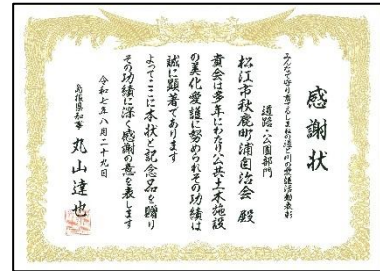 感謝状
みんなで守り育てるしまねの道と川の愛護活動表彰
道路・公園部門
松江市秋鹿町浦自治会 殿
貴会は多年にわたり公共土木施設
の美化愛護に努められその功績は
誠に顕著であります
よってここに本状と記念品を贈り
その功績に深く感謝の意を表します
令和七年八月二十九日
島根県知事 丸山達也